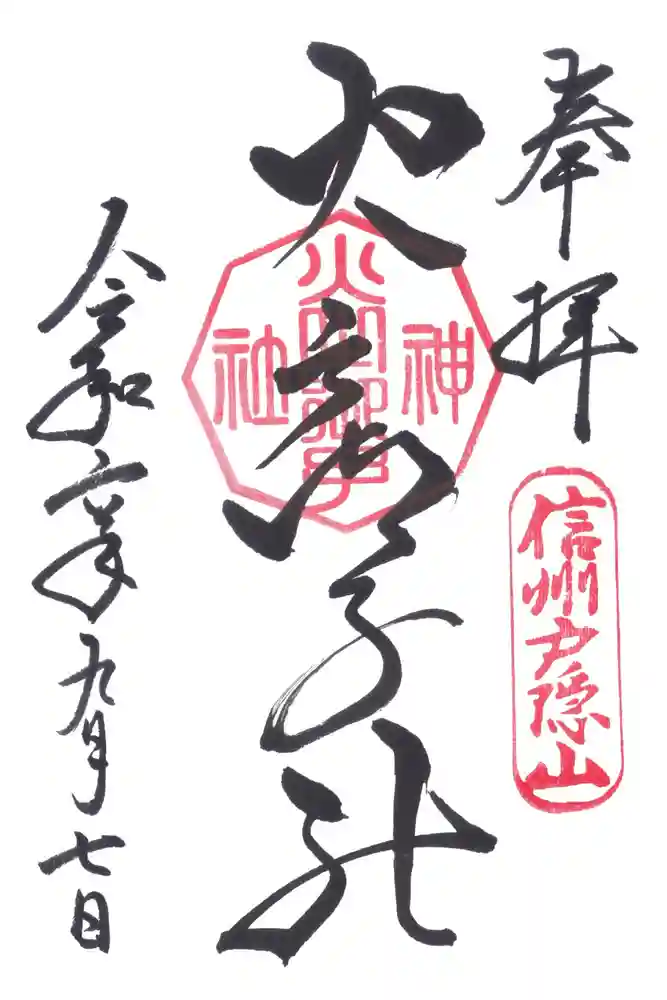 奉拝
信州戸隠山
火之御子社
火之御子
神
社
令和六年九月七日